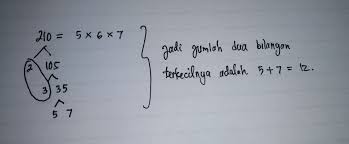 210 = 5 × 6 × 7
2 105
3 35
5 7
Jadi jumlah dua bilangan
terkecilnya adalah 5 + 7 = 12.